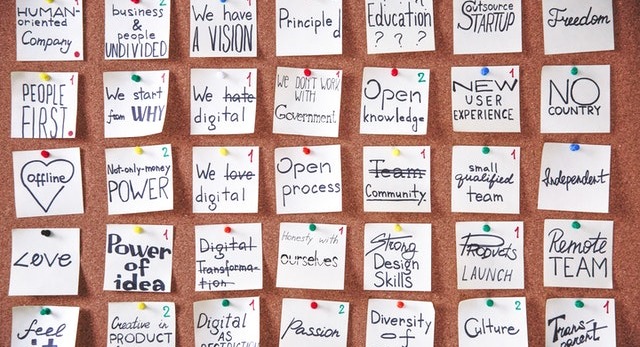 HUMAN-
oriented
Company.
business
&
people
UNDIVIDED
2
We have
A VISION
1
Principle
Education
? ? ?
Outsource
STARTUP
Freedom
PEOPLE
FIRST.
1
We start
from WHY
1
We hate
digital
1
WE DON'T WORK
WITH
Government
1
Open
knowledge
2
NEW
USER
EXPERIENCE
1
NO
COUNTRY
offline
Not-only-money
POWER
2
We love
digital
1
Open
process
Team
Community.
1
small
qualified
team
1
Independent
Love
Power
of
idea
1
Digital
Transforma-
tion
1
Honesty with
ourselves
1
Strong
Design
Skills
Products
LAUNCH
1
Remote
TEAM
feel
it
Creative in
PRODUCT
2
Digital
AS
1
Passion
2
Diversity
of
Culture
2
Trans
parent
1